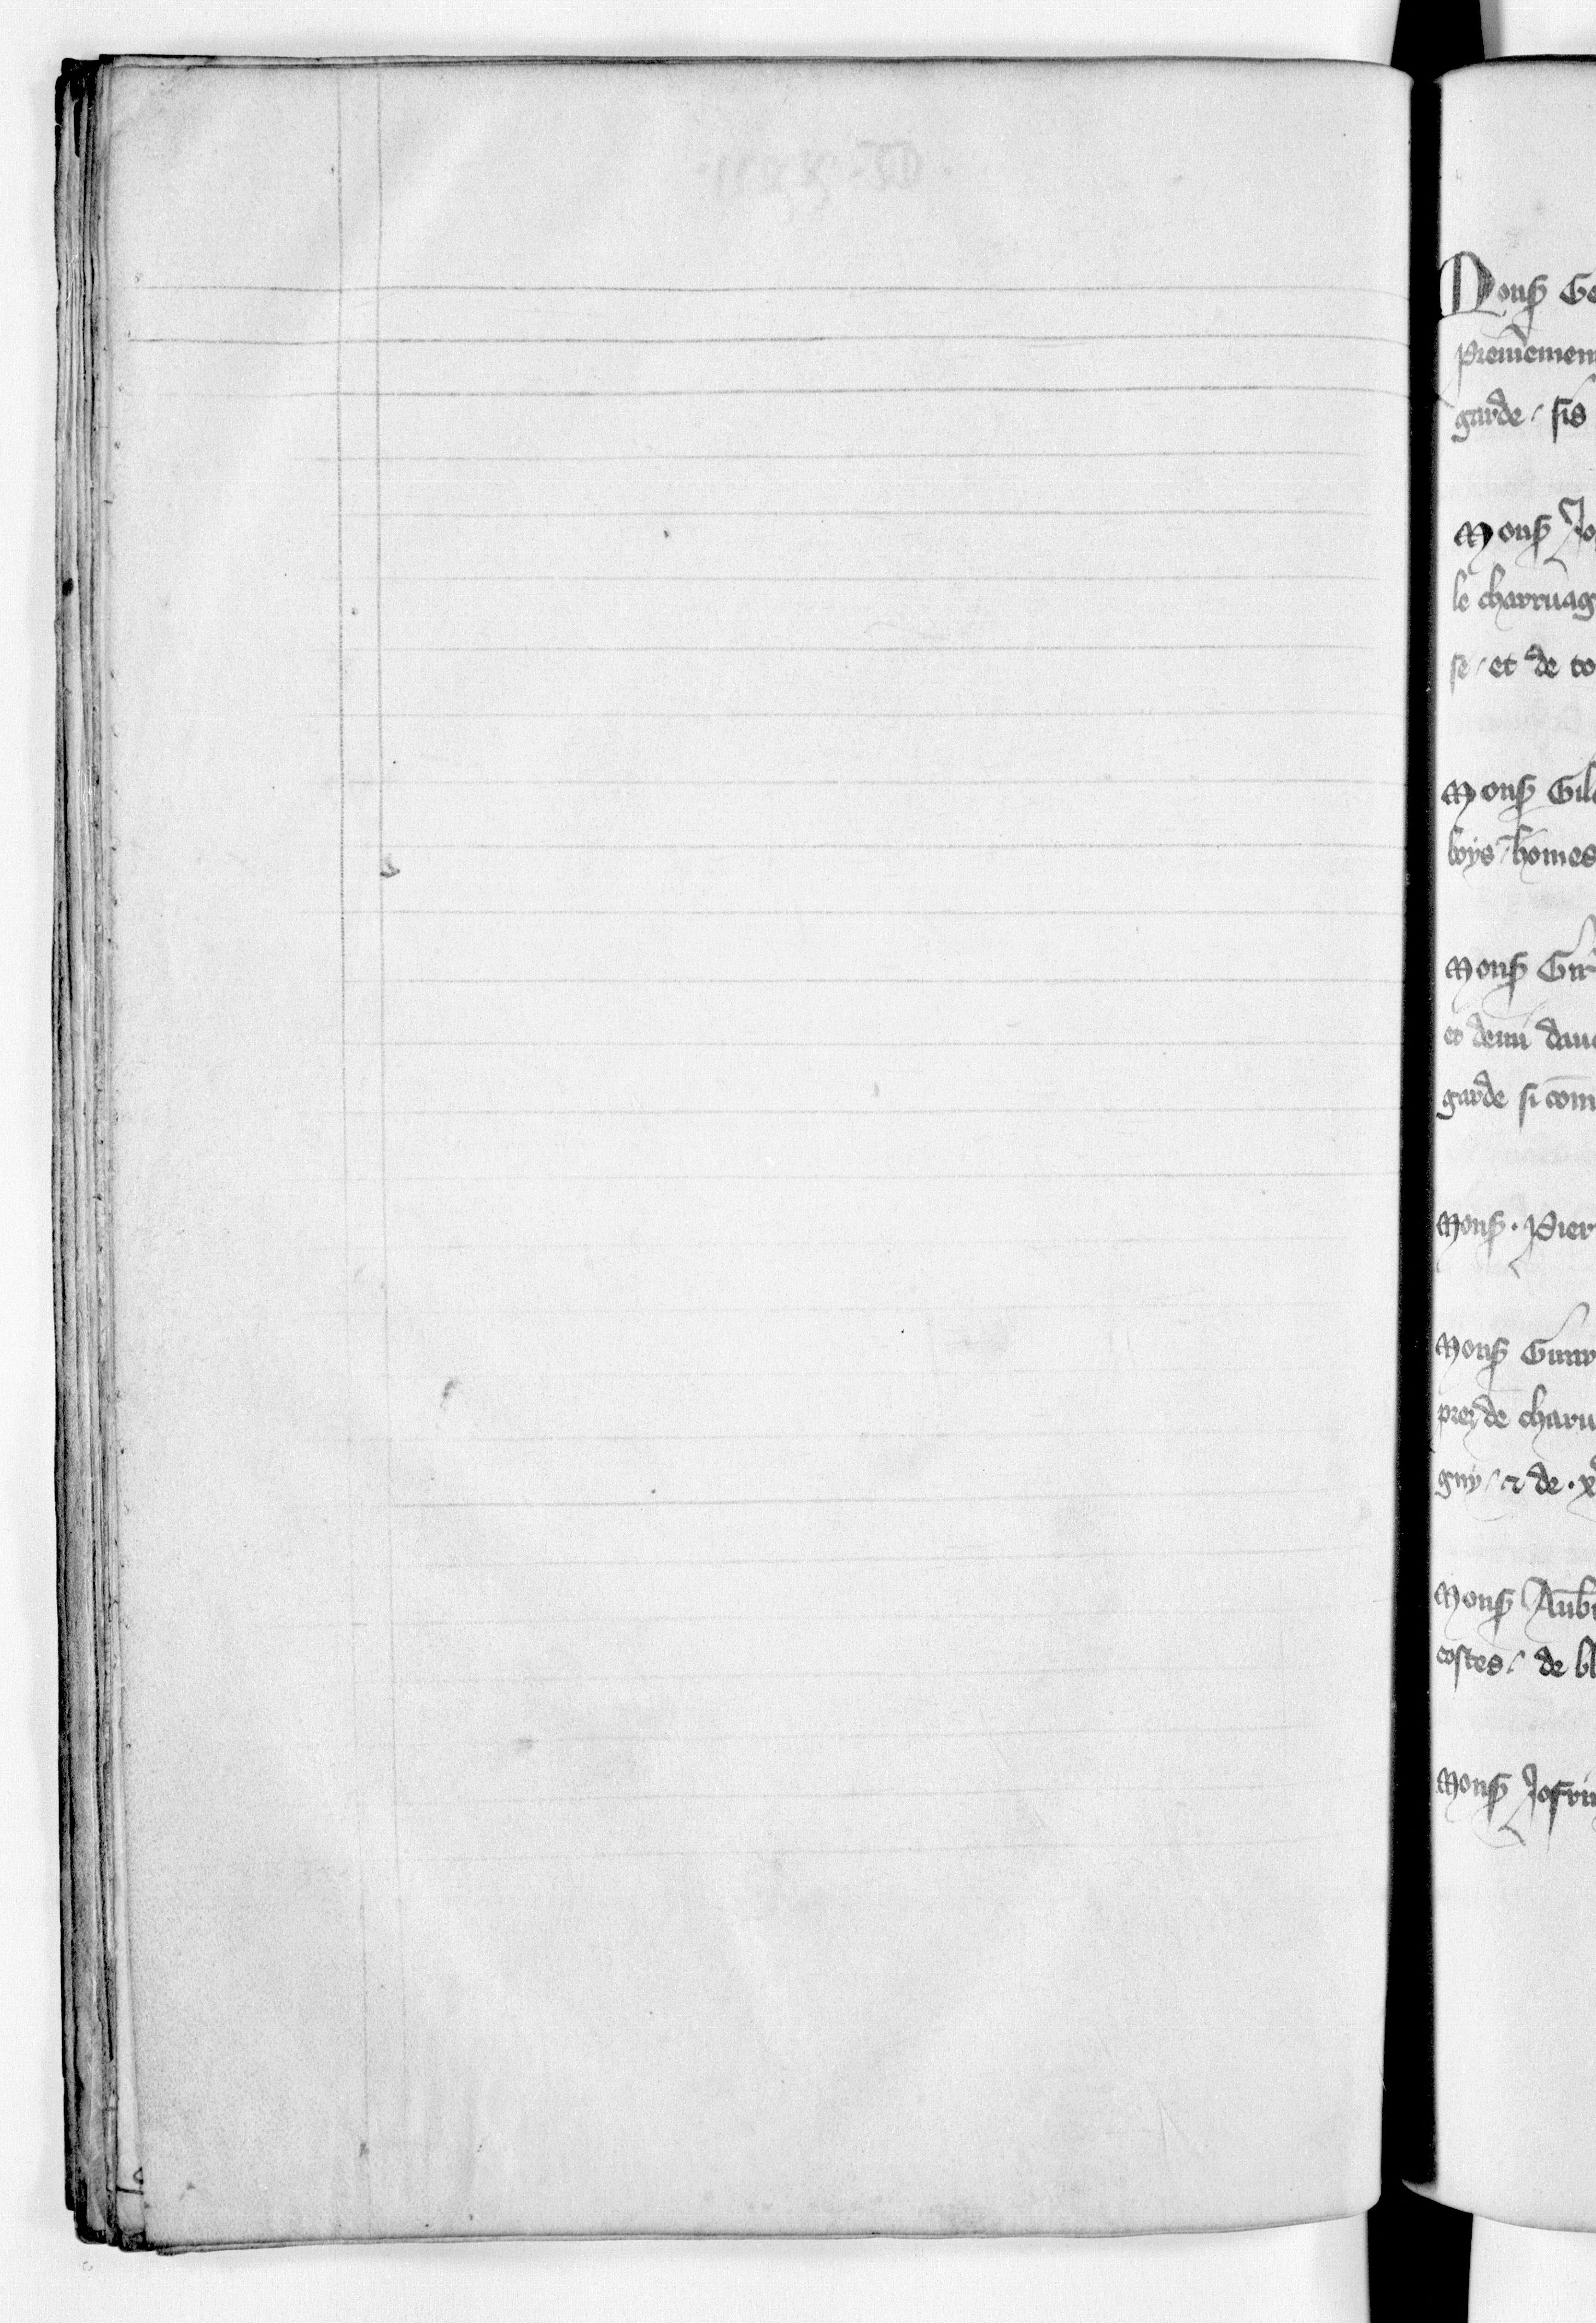 Monsʳ Ge
premieremen
garde / sis
Monsʳ Jo
le charruag
se / et de to
Monsʳ Gil
boys / homes
Monsʳ Gir
et demi dau
garde si com
Monsʳ . Pier
Monsʳ
prez de charu
guy / et de . x
Monsʳ Aub
costes / de bl
Monsʳ Jofri